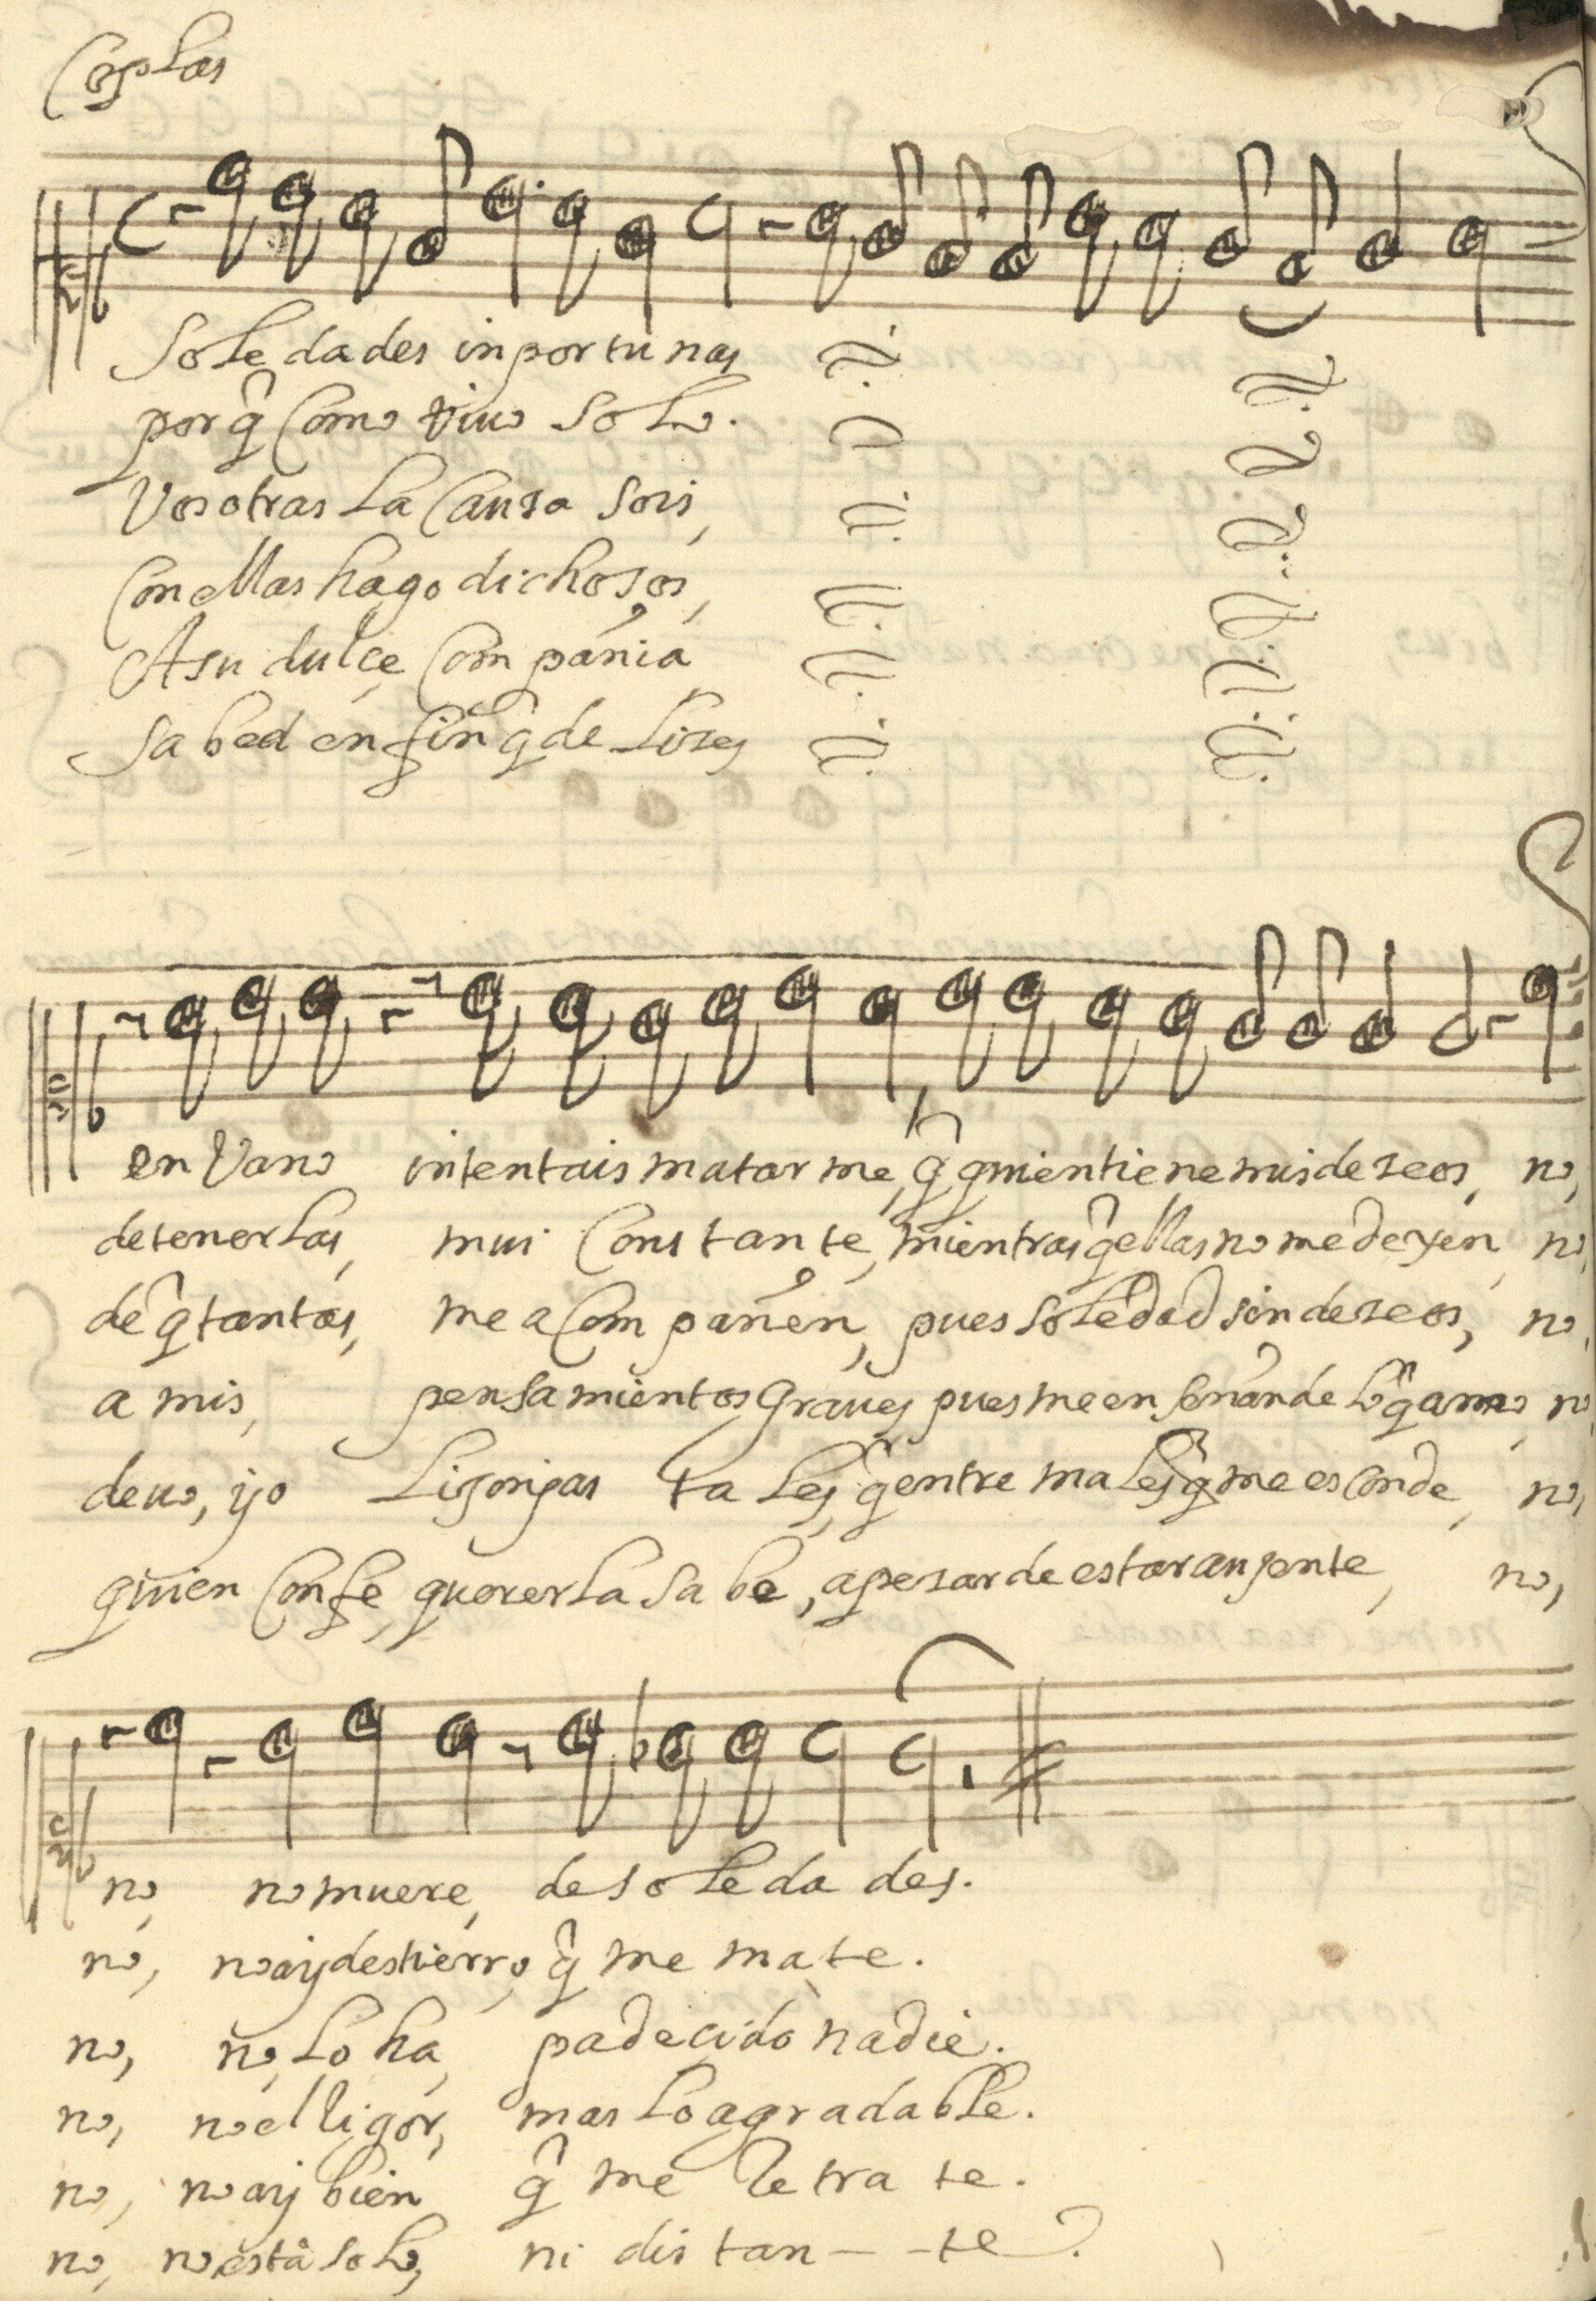 Coplas
Soledades inportunas
porq̂ Como viuo solo.
Vosotras la Causa sois,
Con ellas hago dichosos,
A su dulçe Compañia
sabed en fin q̂ de Lizes
en Vano intentais matarme, q̂ quien tiene mis deseos, no,
detenerlas, mui Constante, mientras q̂ ellas no me dexen, no,
de q̂ tantas, me aCompañen, pues soledad sin deseos, no,
a mis, pensamientos Graues pues me enseñan de lo q̂ amo no,
deuo, yo Lizonjas tales, q̂ entre males q̂ me esConde, no,
quien Con fe, quererla sabe, a pesar de estar ausente, no,
no, no muere, de soledades.
no, no ay destierro, q̂ me mate.
no, no, lo ha, padecido nadie.
no, no el ligor, mas lo agradable.
no, no ay bien q̂ me retrate.
no, no està solo, ni distan- - -te.